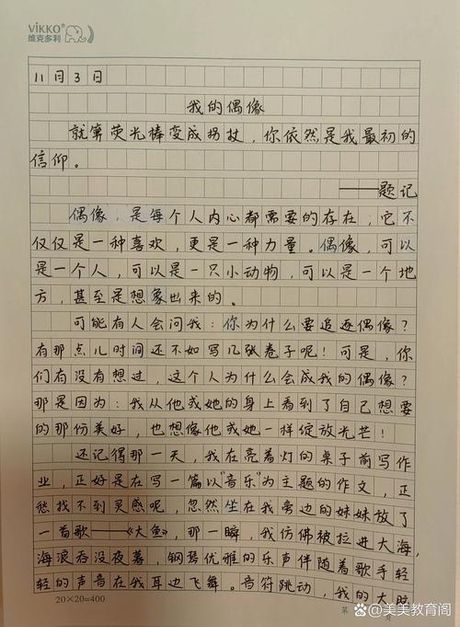 ViKKO®
维克多利
11月3日
我的偶像
就算荧光棒变成拐杖，你依然是我最初的
信仰。
——题记
偶像，是每个人内心都需要的存在，它不
仅仅是一种喜欢，更是一种力量。偶像，可以
是一个人，可以是一只小动物，可以是一个地
方，甚至是想象出来的。
可能有人会问我：你为什么要追逐偶像？
有那点儿时间还不如写几张卷子呢！可是，你
们有没有想过，这个人为什么会成我的偶像？
那是因为：我从他或她的身上看到了自己想要
的那份美好，也想像他或她一样绽放光芒！
还记得那一天，我在亮着灯的桌子前写作
业，正好是在写一篇以"音乐"为主题的作文，正
愁找不到灵感呢，忽然坐在我旁边的妹妹放了
一首歌——《大鱼》，那一瞬，我仿佛被拉进大海，
海浪吞没夜幕，钢琴优雅的乐声伴随着歌手轻
轻的声音在我耳边飞舞。音符跳动，我的大脑
20×20=400
第
页
@美美教育阁